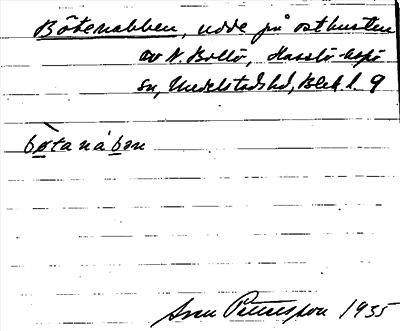 Bötenabben, udde på ostkusten
av N. Bollö, Hasslö-Aspö
sn, Medelstads hd, Blek. l. 9
bøtanábən
Sven Pettersson 1935